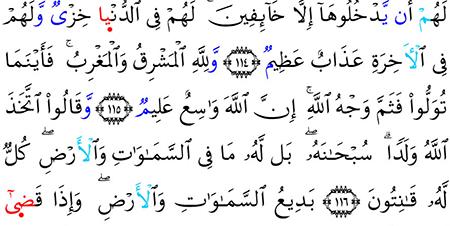 لَهُمْ أَن يَدْخُلُوهَآ إِلَّا خَآئِفِينَ ۚ لَهُمْ فِى ٱلدُّنْيَا خِزْىٌ وَلَهُمْ
فِى ٱلْأَخِرَةِ عَذَابٌ عَظِيمٌ ﴿١١٤﴾ وَلِلَّهِ ٱلْمَشْرِقُ وَٱلْمَغْرِبُ ۚ فَأَيْنَمَا
تُوَلُّوا۟ فَثَمَّ وَجْهُ ٱللَّهِ ۚ إِنَّ ٱللَّهَ وَٰسِعٌ عَلِيمٌ ﴿١١٥﴾ وَقَالُوا۟ ٱتَّخَذَ
ٱللَّهُ وَلَدًا ۗ سُبْحَٰنَهُۥ ۖ بَل لَّهُۥ مَا فِى ٱلسَّمَٰوَٰتِ وَٱلْأَرْضِ ۖ كُلٌّ
لَّهُۥ قَٰنِتُونَ ﴿١١٦﴾ بَدِيعُ ٱلسَّمَٰوَٰتِ وَٱلْأَرْضِ ۖ وَإِذَا قَضَىٰٓ